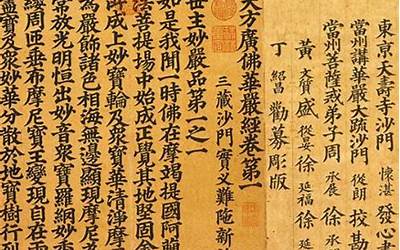 東京天壽寺沙門 懷湛 發心書
當州講華嚴大疏沙門 從朗 挍勘
當州菩薩戒弟子周 承展 徐
黃 文寶盛 從妥 徐 延福 徐
丁 紹昌 勸募彫版
大方廣佛華嚴經卷第一
三藏沙門實叉難陁新
世主妙嚴品第一之一
如是我聞一時佛在摩竭提國阿蘭
法菩提場中始成正覺其地堅固金
所成上妙寶輪及眾寶華清淨摩
為嚴飾諸色相海無邊顯現摩尼
常放光明恒出妙音眾寶羅網妙香
纓周匝垂布摩尼寶王變現自在
盡寶及眾妙華分散於地寶樹行列